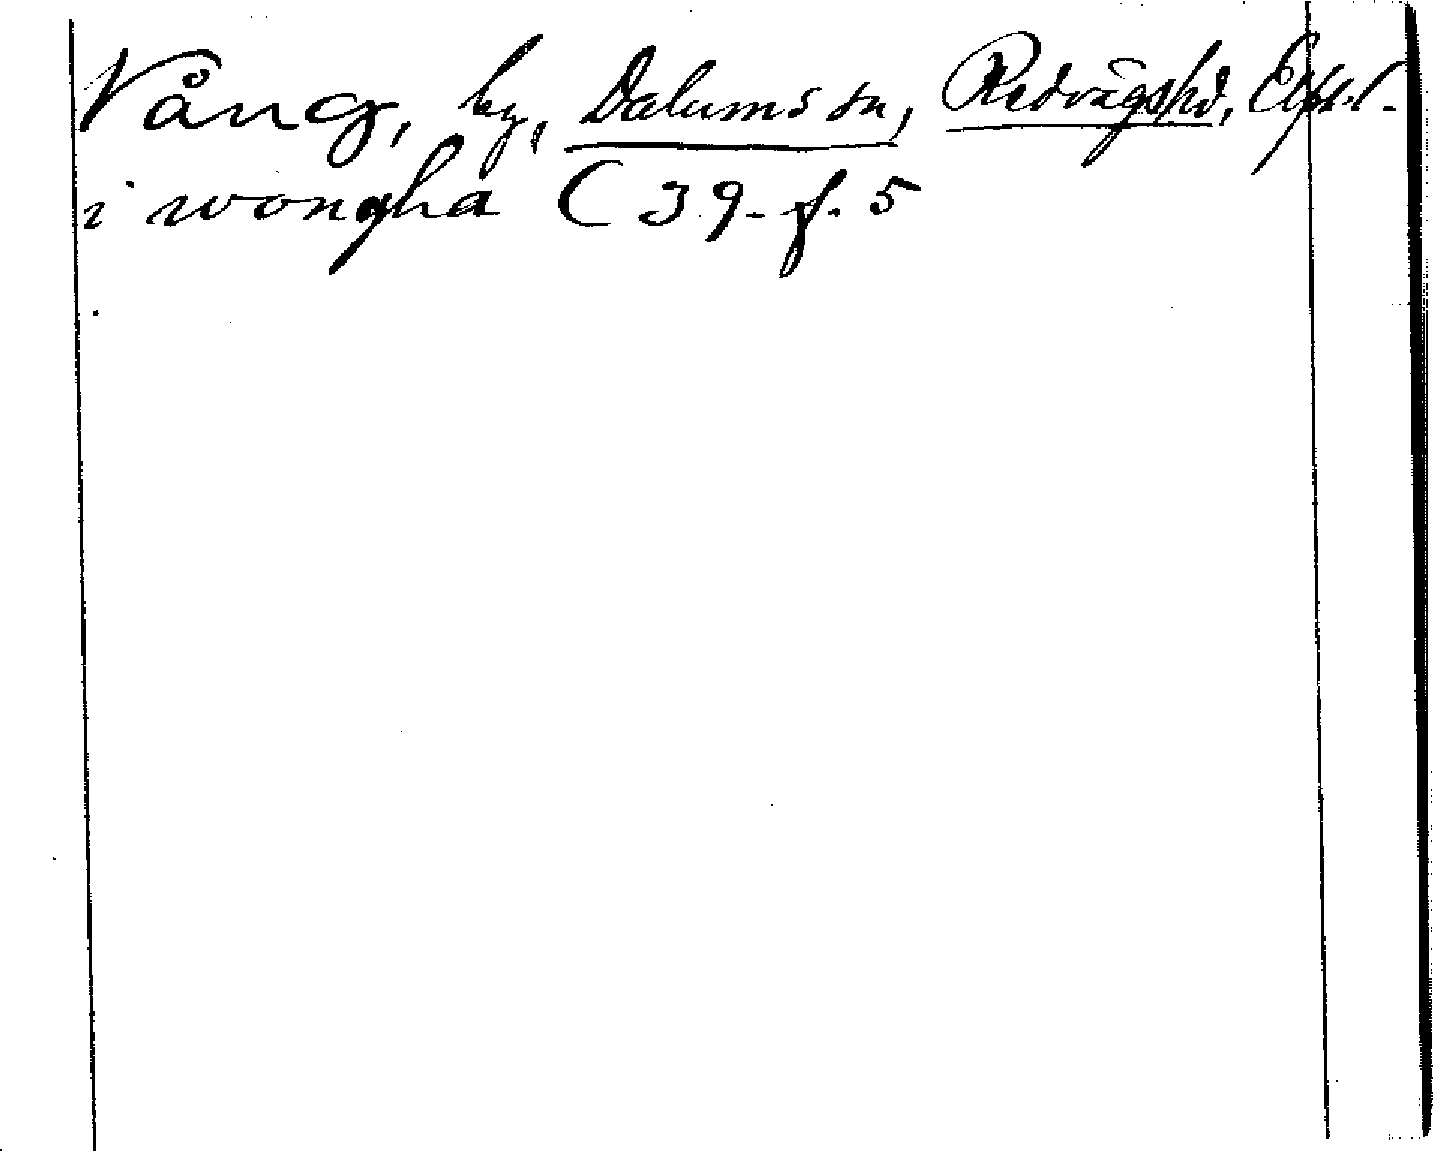 Vång, by, Dalums sn, Redvägs hd, Elfsb. l.
i wongha C 39. f. 5